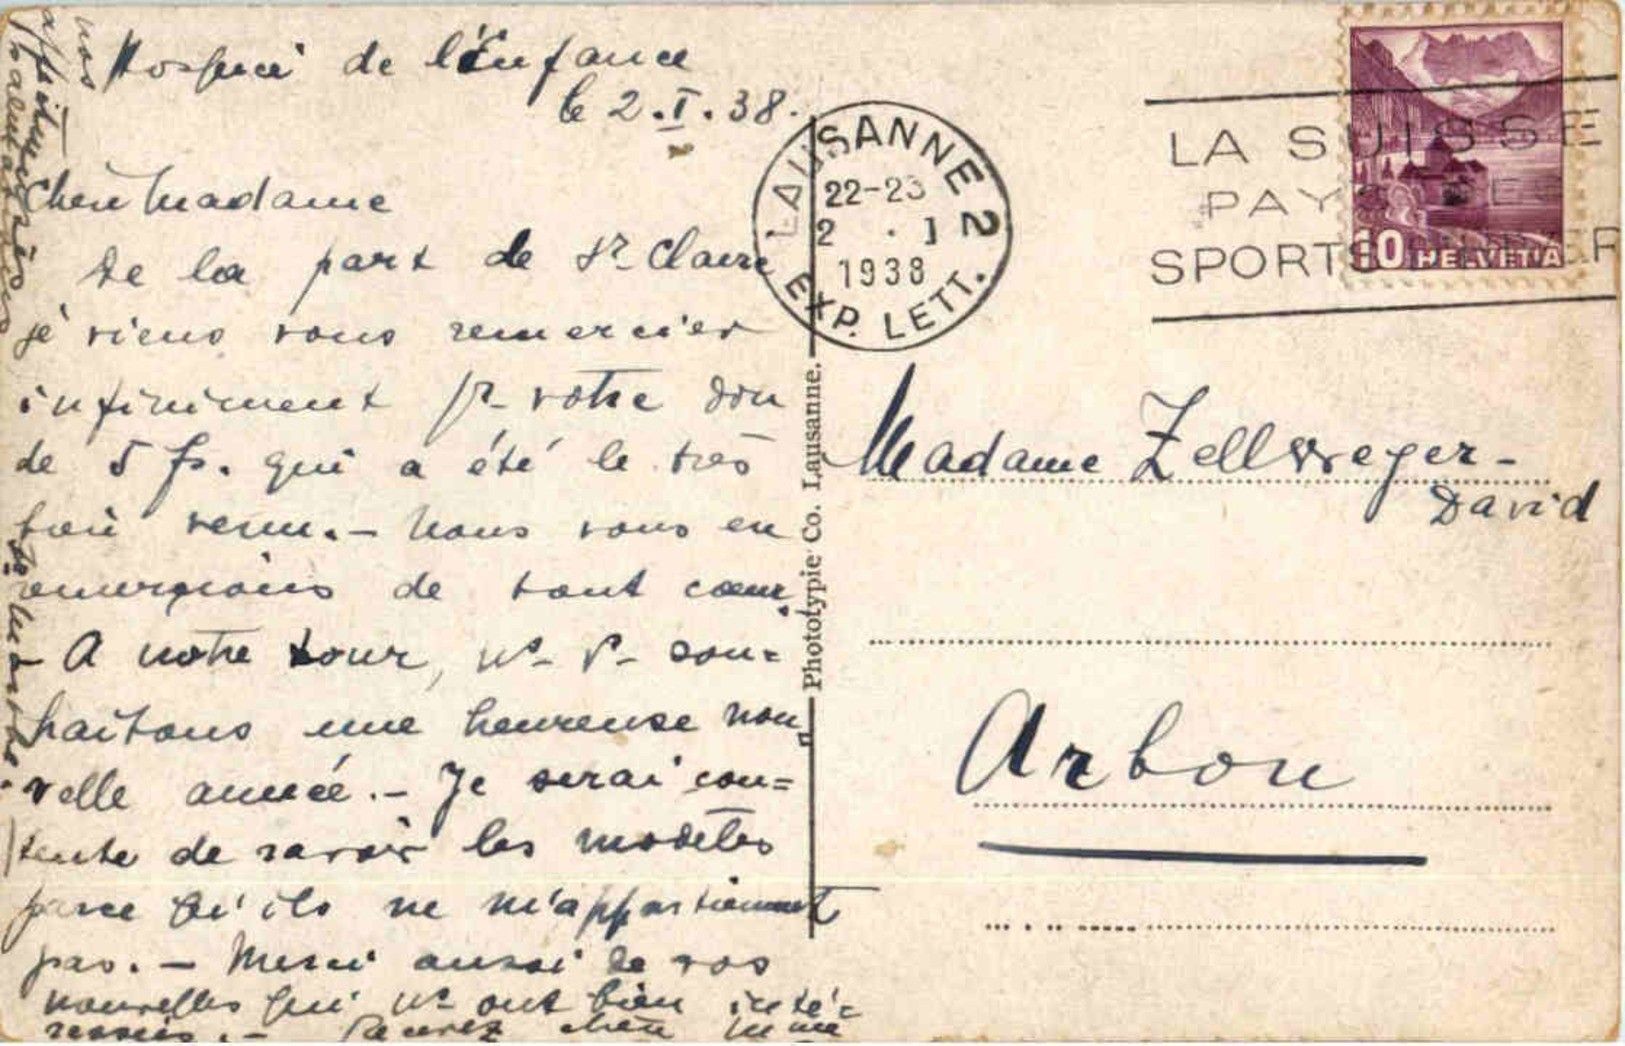 Hospice de l'Enfance
le 2.I.38.
Chère Madame
De la part de Sr Claire
je viens vous remercier
infiniment pr votre don
de 5 fr. qui a été le très
bien venu. – Nous vous en
remercions de tout cœur.
– A notre tour, ns vs sou=
haitons une heureuse nou
velle année. – Je serai con=
tente de ravoir les modèles
parce qu'ils ne m'appartiennent
pas. – Merci aussi de vos
nouvelles qui ns ont bien inté=
ressés. – Recevez chère Mme
nos
affectueuses
salutations
LAUSANNE 2
22-23
2 . I
1938
EXP. LETT.
LA SUISSE
PAYS DES
SPORTS D'HIVER
10 HELVETIA
Phototypie Co. Lausanne.
Madame Zellweger-
David
Arbon